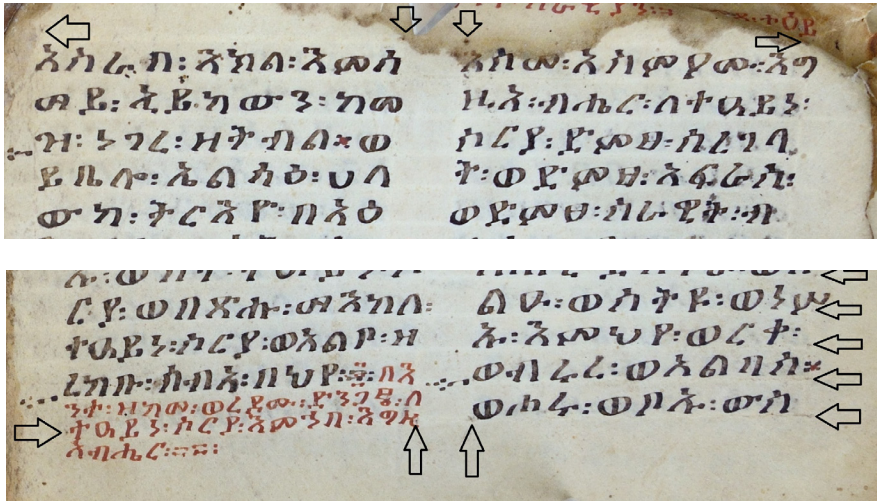 አስራበ፡እክል፡እምሰ
ማይ፡ኢይከውን፡ከመ
ዝ፡ነገረ፡ዘትብል፡ወ
ይቤሎ፡ኤልሳዕ፡ሀለ
ውከ፡ትርአዮ፡በአዕ
እስመ፡አስምዖሙ፡እግ
ዚአ፡ብሔር፡ለተዐይነ፡
ሶርያ፡ድምፀ፡ሰረገላ
ት፡ወድምፀ፡አፍራስ፡
ወድምፀ፡ሰራዊት፡ብ
ርያ፡ወበጽሑ፡ማእከለ፡
ተዐይነ፡ሶርያ፡ወአልቦ፡ዘ
ረከቡ፡ሰብአ፡በህየ፡በእ
ንተ፡ዘከመ፡ወረዶሙ፡ድንጋፄ፡ለ
ተዐይነ፡ሶርያ፡እምኀበ፡እግዚ
አብሔር፡፡
ልዑ፡ወሰትዩ፡ወነሥ
ኡ፡እምህየ፡ወርቀ፡
ወብሩረ፡ወአልባሰ
ወሖሩ፡ወቦኡ፡ውስ